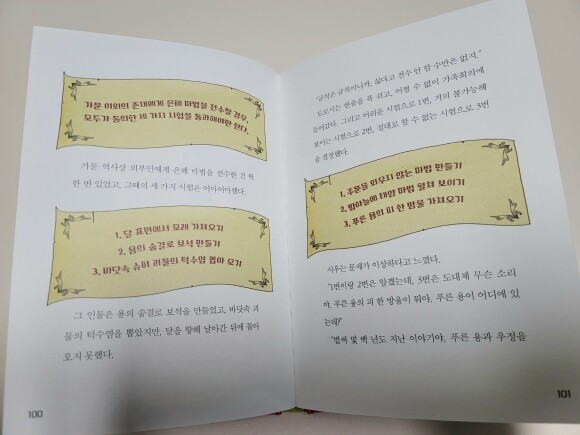 가문 이외의 존재에게 은폐 마법을 전수할 경우,
모두가 동의한 세 가지 시험을 통과해야만 한다.
가문 역사상 외부인에게 은폐 마법을 전수한 건 딱
한 번 있었고, 그때의 세 가지 시험은 어마어마했다.
1. 달 표면에서 모래 가져오기
2. 용의 숨결로 보석 만들기
3. 바닷속 슈퍼 괴물의 턱수염 뽑아 오기
그 인물은 용의 숨결로 보석을 만들었고, 바닷속 괴
물의 턱수염을 뽑았지만, 달을 향해 날아간 뒤에 돌아
오지 못했다.
100
"규칙은 규칙이니까. 싫다고 전수 안 할 수만은 없지."
도로시는 한숨을 푹 쉬고, 어쩔 수 없이 가족회의에
들어갔다. 그리고 어려운 시험으로 1번, 거의 불가능해
보이는 시험으로 2번, 절대로 할 수 없는 시험으로 3번
을 결정했다.
1. 주문을 외우지 않는 마법 만들기
2. 밤하늘에 태양 마법 펼쳐 보이기
3. 푸른 용의 피 한 방울 가져오기
시우는 문제가 이상하다고 느꼈다.
"1번이랑 2번은 알겠는데, 3번은 도대체 무슨 소리
야. 푸른 용의 피 한 방울이 뭐야. 푸른 용이 어디에 있
는데?"
"벌써 몇 백 년도 지난 이야기야. 푸른 용과 우정을
101